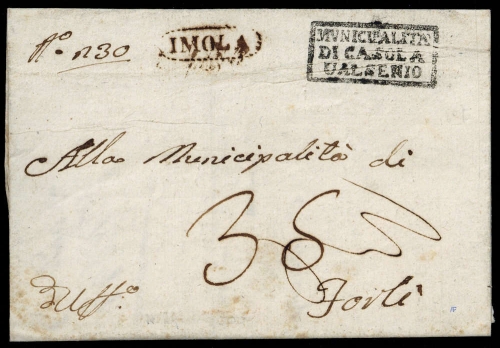 N.º 1130
IMOLA
MUNICIPALITA
DI CASOLA
VALSENIO
Alla Municipalità di
Forlì
D'Uff.º